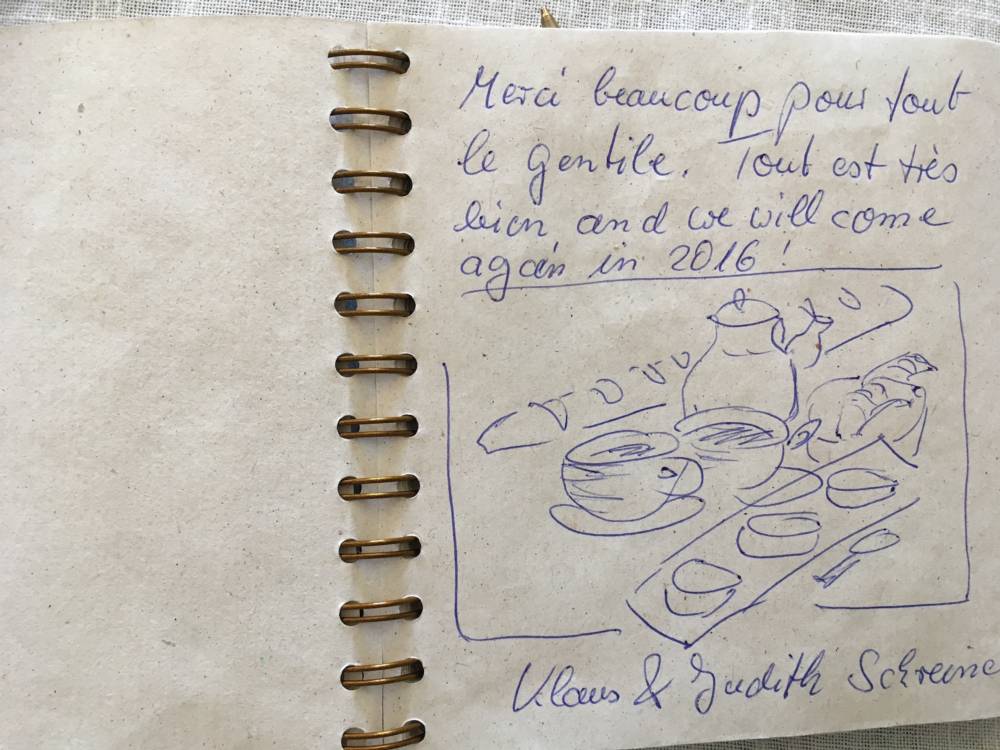 Merci beaucoup pour tout
le gentile. Tout est très
bien and we will come
again in 2016!
Klaus & Judith